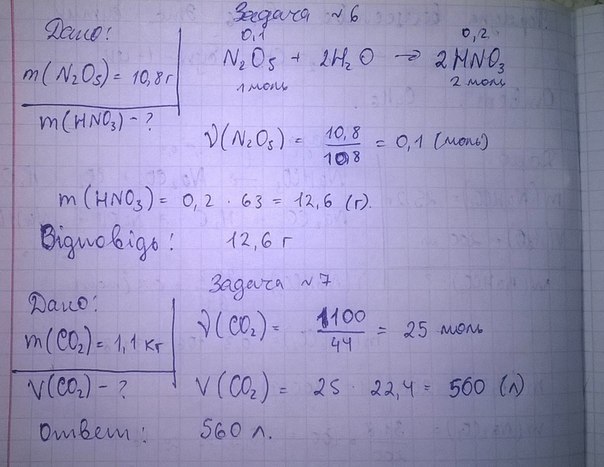 Задача №6
Дано:
m(N₂O₅) = 10,8 г
m(HNO₃) - ?
0,1 0,2
N₂O₅ + 2H₂O → 2HNO₃
1 моль 2 моль
ν(N₂O₅) = 10,8 / 108 = 0,1 (моль)
m(HNO₃) = 0,2 · 63 = 12,6 (г).
Відповідь: 12,6 г
Задача №7
Дано:
m(CO₂) = 1,1 кг
V(CO₂) - ?
ν(CO₂) = 1100 / 44 = 25 моль
V(CO₂) = 25 · 22,4 = 560 (л)
Ответ: 560 л.